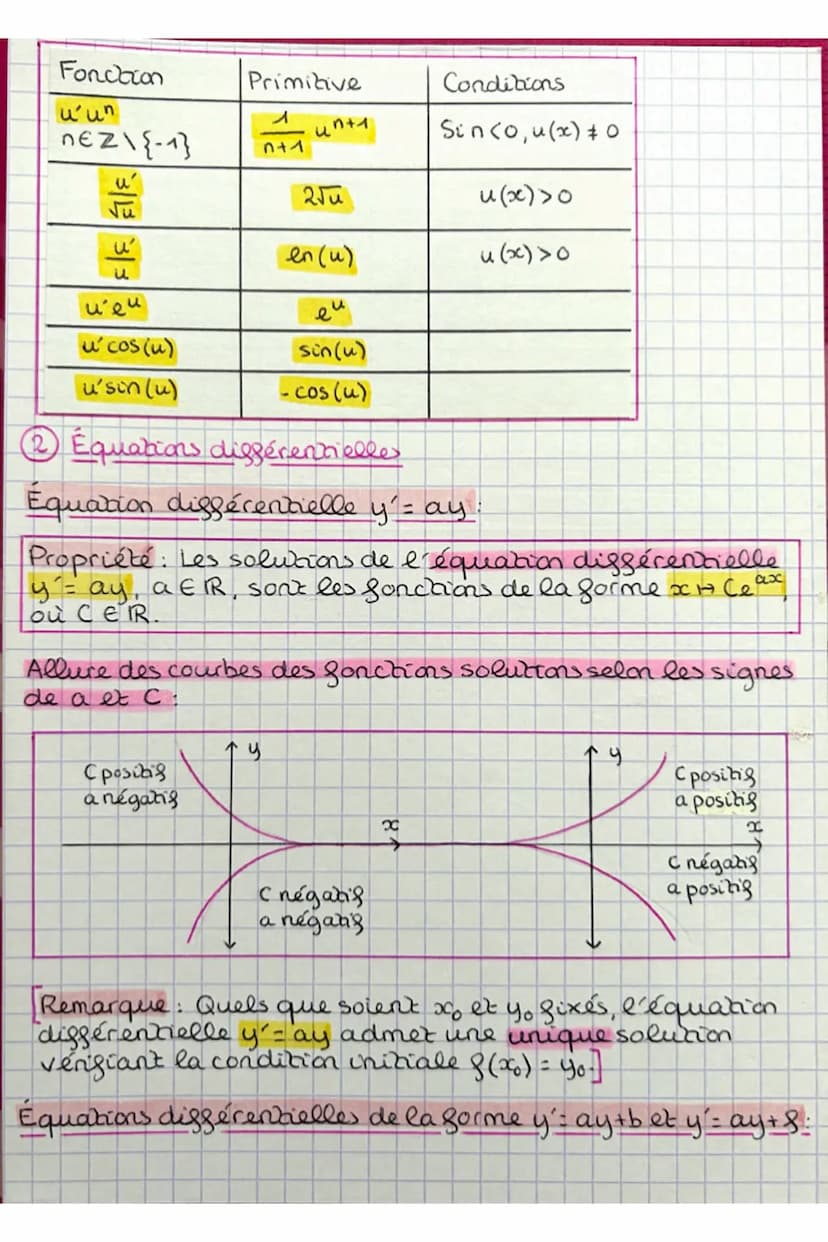 Fonction | Primitive | Conditions
u'uⁿ
n∈ℤ\{-1} | 1/(n+1) uⁿ⁺¹ | Si n<0, u(x) ≠ 0
u'/√u | 2√u | u(x)>0
u'/u | ln(u) | u(x)>0
u'eᵘ | eᵘ
u'cos(u) | sin(u)
u'sin(u) | -cos(u)
② Équations différentielles
Équation différentielle y'= ay :
Propriété : Les solutions de l'équation différentielle
y'= ay, a∈ℝ, sont les fonctions de la forme x↦Ceᵃˣ,
où C∈ℝ.
Allure des courbes des fonctions solutions selon les signes
de a et C :
y
C positif
a négatif
x
C négatif
a négatif
y
C positif
a positif
x
C négatif
a positif
[Remarque : Quels que soient x₀ et y₀ fixés, l'équation
différentielle y'= ay admet une unique solution
vérifiant la condition initiale f(x₀) = y₀.]
Équations différentielles de la forme y'= ay+b et y'= ay+f :